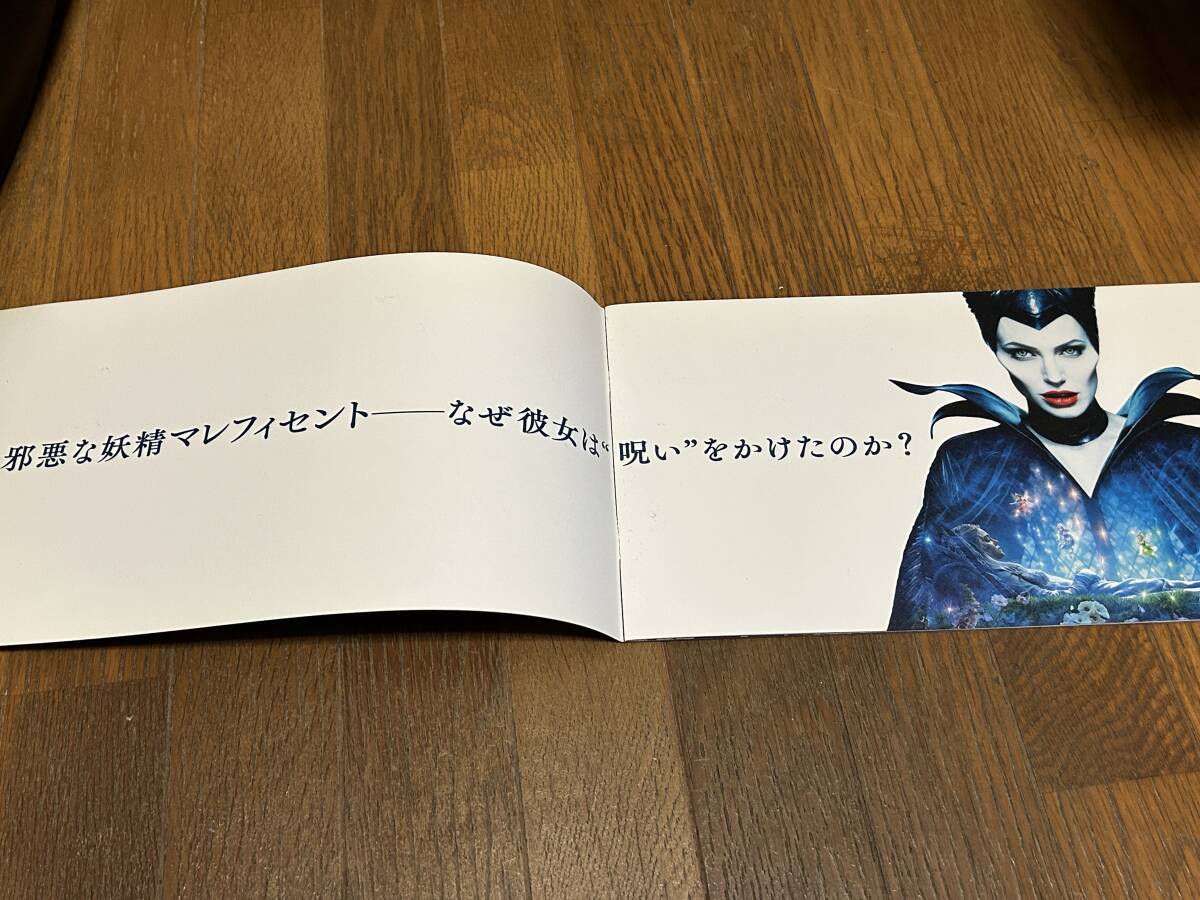 邪悪な妖精マレフィセント――なぜ彼女は“呪い”をかけたのか?